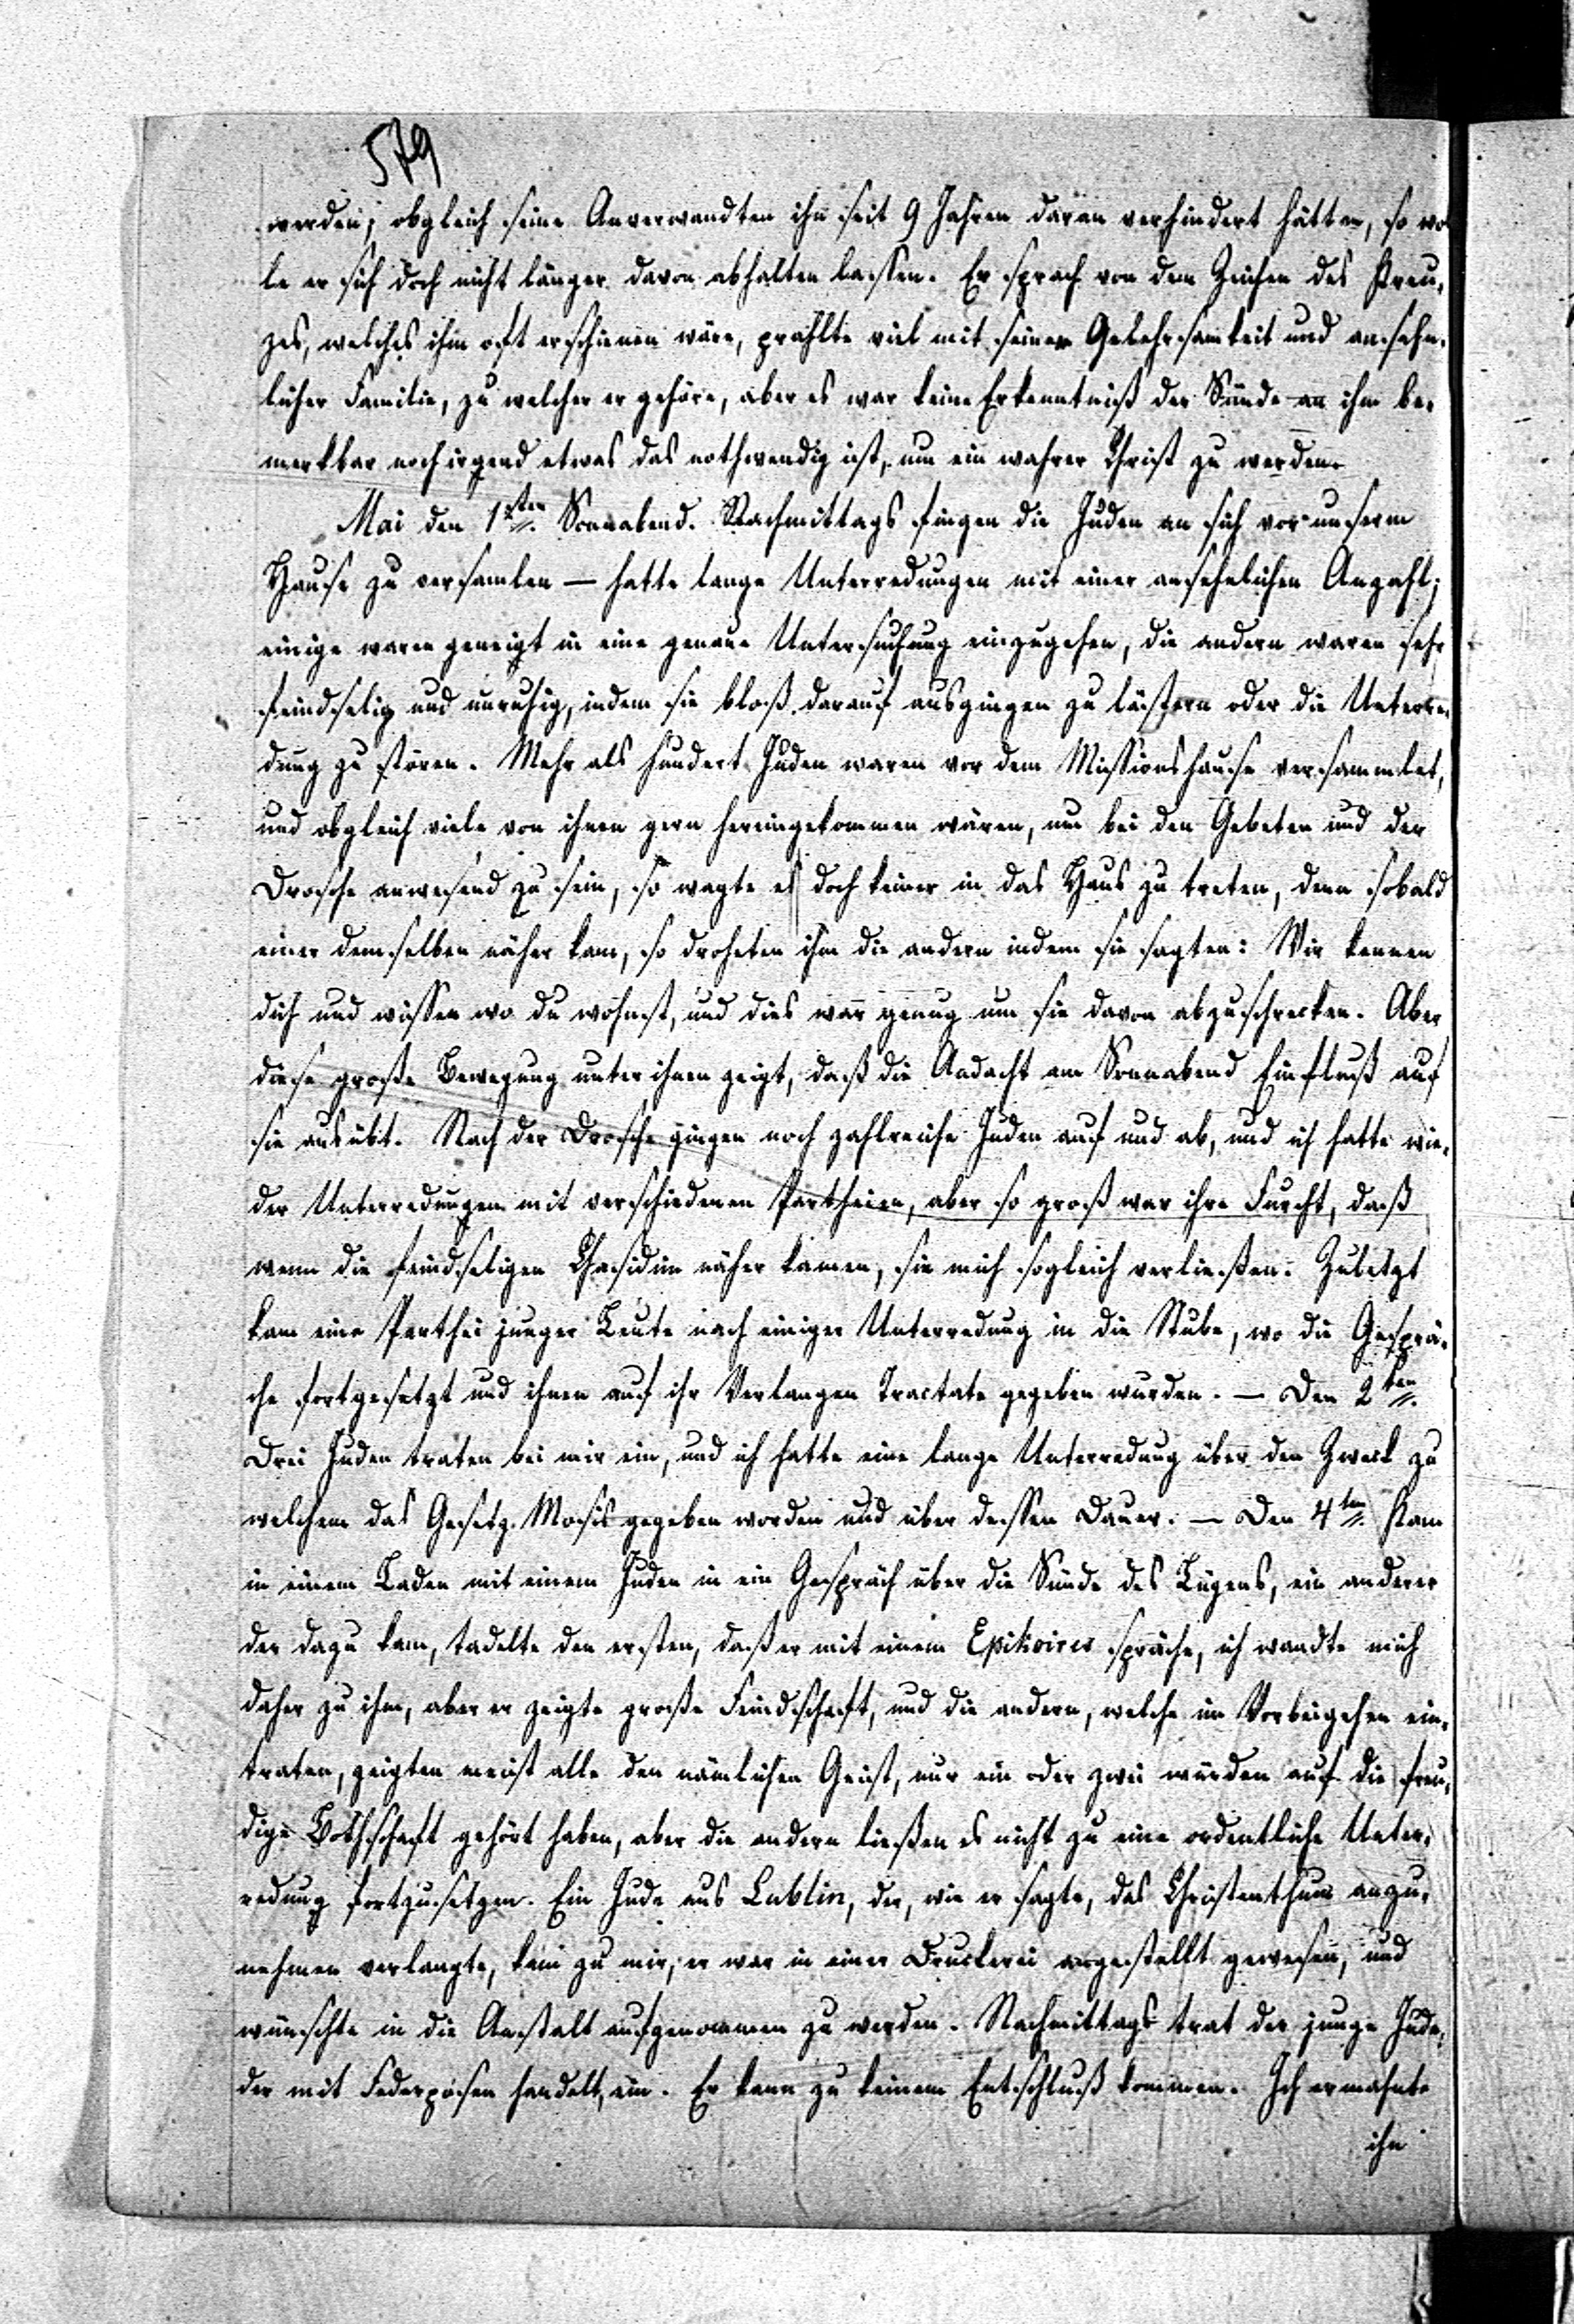 579
werden; obgleich seine Anverwandten ihn seit 9 Jahren daran verhindert hätten, so wo
le er sich doch nicht länger davon abhalten lassen. Er sprach von dem Zeichen des Kreu-
zes, welches ihm oft erschienen wäre, prahlte viel mit seiner Gelehrsamkeit und ansehn-
licher Familie, zu welcher er gehöre, aber es war keine Erkenntniß der Sünde an ihm be-
merkbar noch irgend etwas das nothwendig ist, um ein wahrer Christ zu werden.
Mai den 1sten Sonnabend. Nachmittags fingen die Juden an sich vor unserm
Hause zu versamlen — hatte lange Unterredungen mit einer ansehnlichen Anzahl;
einige waren geneigt in eine genaue Untersuchung einzugehen, die andern waren sehr
feindselig und unruhig, indem sie bloß darauf ausgingen zu lästern oder die Unterre-
dung zu stören. Mehr als hundert Juden waren vor dem Missionshause versammlet,
und obgleich viele von ihnen gern hereingekommen wären, um bei den Gebeten und der
Drosche anwesend zu sein, so wagte es doch keiner in das Haus zu treten, denn sobald
einer demselben näher kam, so droheten ihm die andern indem sie sagten: Wir kennen
dich und wissen wo du wohnst, und dies war genug um sie davon abzuschrecken. Aber
diese große Bewegung unter ihnen zeigt, daß die Andacht am Sonnabend Einfluß auf
sie ausübt. Nach der Drosche gingen noch zahlreiche Juden auf und ab, und ich hatte wie-
der Unterredungen mit verschiedenen Partheien, aber so groß war ihre Furcht, daß
wenn die feindseligen Chasidim näher kamen, sie mich sogleich verließen. Zuletzt
kam eine Parthei junger Leute nach einiger Unterredung in die Stube, wo die Gesprä-
che fortgesetzt und ihnen auf ihr Verlangen Tractate gegeben wurden. — Den 2ten
Drei Juden traten bei mir ein, und ich hatte eine lange Unterredung über den Zweck zu
welchem das Gesetz Mosis gegeben worden und über dessen Dauer. — Den 4ten Kam
in einem Laden mit einem Juden in ein Gespräch über die Sünde des Lügens, ein anderer
der dazu kam, tadelte den ersten, daß er mit einem Epikoires spräche, ich wandte mich
daher zu ihm, aber er zeigte große Feindschaft, und die andern, welche im Vorbeigehen ein-
traten, zeigten meist alle den nämlichen Geist, nur ein oder zwei würden auf die freu-
dige Bothschaft gehört haben, aber die andern ließen es nicht zu eine ordentliche Unter-
redung fortzusetzen. Ein Jude aus Lublin, der, wie er sagte, das Christenthum anzu-
nehmen verlangte, kam zu mir, er war in einer Druckerei angestellt gewesen, und
wünschte in die Anstalt aufgenommen zu werden. Nachmittags trat der junge Jude,
der mit Federposen handelt, ein. Er kann zu keinem Entschluß kommen. Ich ermahnte
ihn